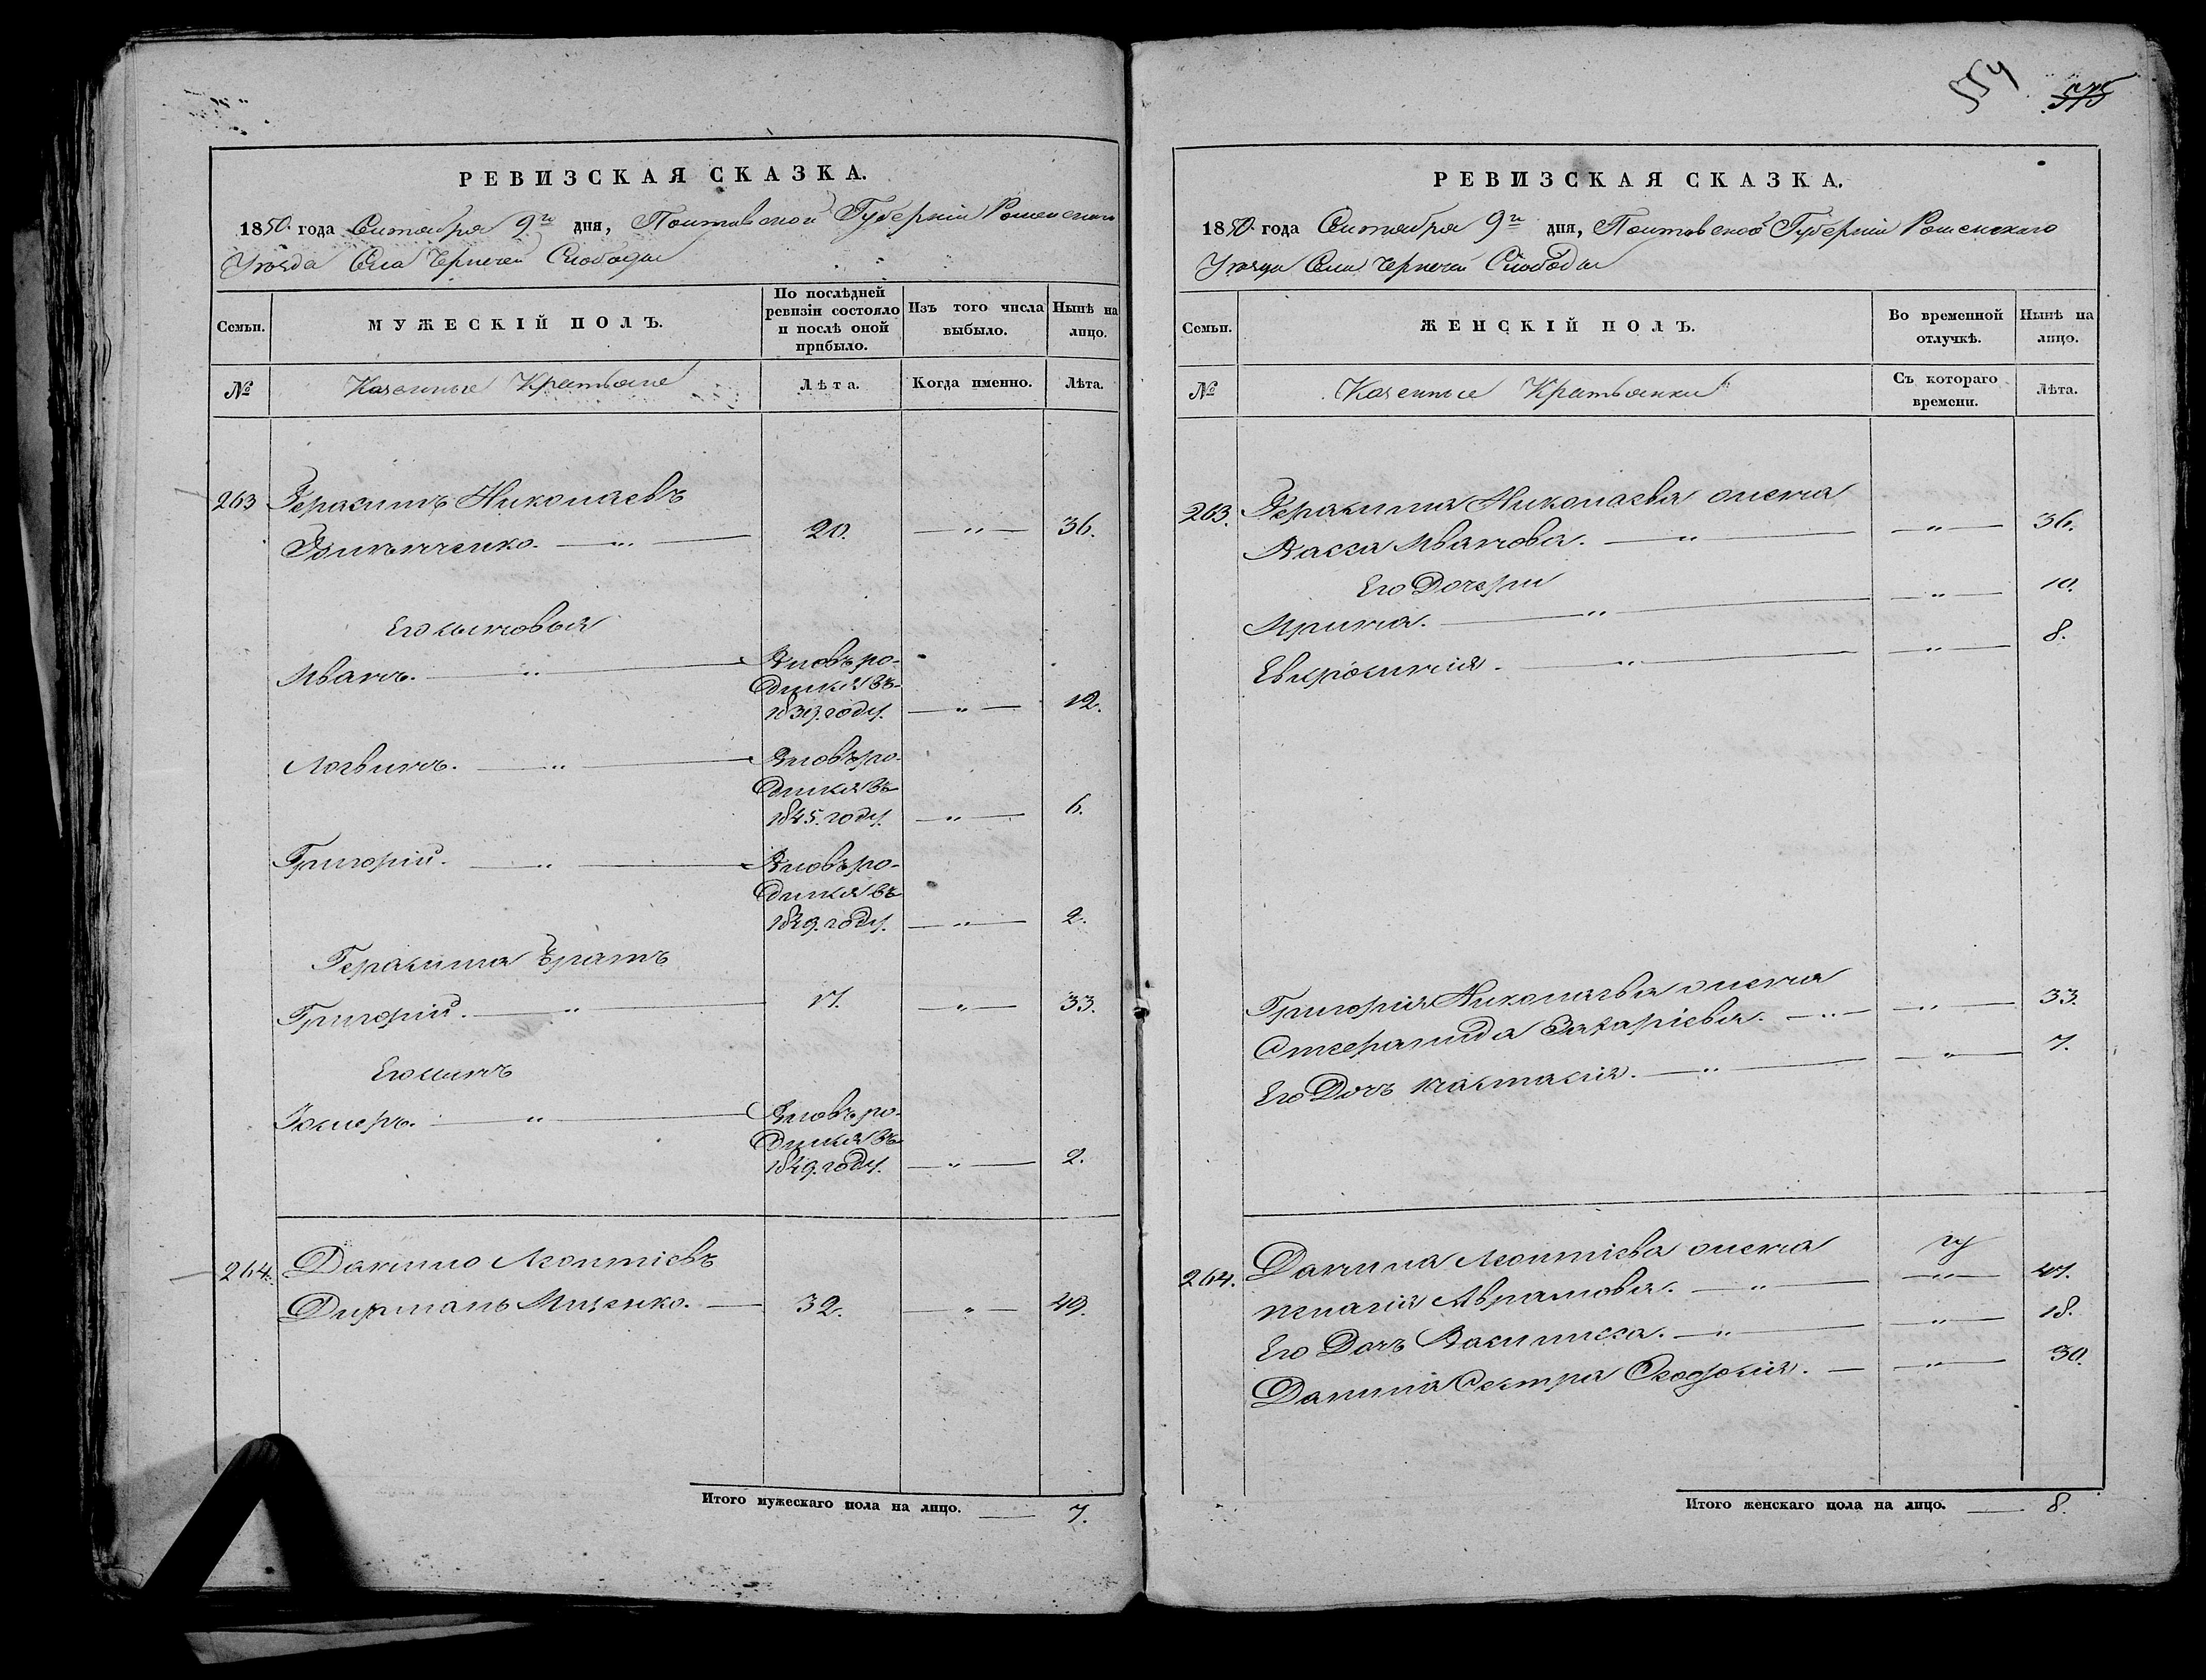 554
575
РЕВИЗСКАЯ СКАЗКА.
1850 года Сентября 9го дня, Полтавской Губерніи Роменскаго
Уѣзда Села Чернечей Слободы
Семьи.
МУЖЕСКІЙ ПОЛЪ.
По послѣдней ревизіи состояло и послѣ оной прибыло.
Изъ того числа выбыло.
Нынѣ на лицо.
№
Казенные Крестьяне
Лѣта.
Когда именно.
Лѣта.
263 Герасимъ Николаевъ
20. — " — 36.
Его сыновья
Иванъ. — " — Вновь ро-
дился въ
1839. году. — " — 12.
Логвинъ. — " — Вновь ро-
дился въ
1845. году. — " — 6.
Григорій. — " — Вновь ро-
дился въ
1849. году. — " — 2.
Герасима братъ
Григорій. — " — 17. — " — 33.
Его сынъ
— " — Вновь ро-
дился въ
1849. году. — " — 2.
264. Данило Леонтіевъ
Мищенко. — 32. — " — 49.
Итого мужескаго пола на лицо. — 7.
РЕВИЗСКАЯ СКАЗКА.
1850 года Сентября 9го дня, Полтавской Губерніи Роменскаго
Уѣзда Села Чернечей Слободы
Семьи.
ЖЕНСКІЙ ПОЛЪ.
Во временной отлучкѣ.
Нынѣ на лицо.
№
Казенные Крестьянки
Съ котораго времени.
Лѣта.
263. Герасима Николаева жена
Васса Иванова. — " — " — 36.
Его Дочери
Ирина. — " — " — 10.
Евфросинія. — " — " — 8.
Григорія Николаева жена
Захаріева. — " — " — 33.
Его Дочь Настасія. — " — " — 7.
264. Данила Леонтіева жена
Пелагія Аврамова. — " — " — 47.
Его Дочь Василисса. — " — " — 18.
Данила Сестра Феодосія. — " — 30.
Итого женскаго пола на лицо. — 8.